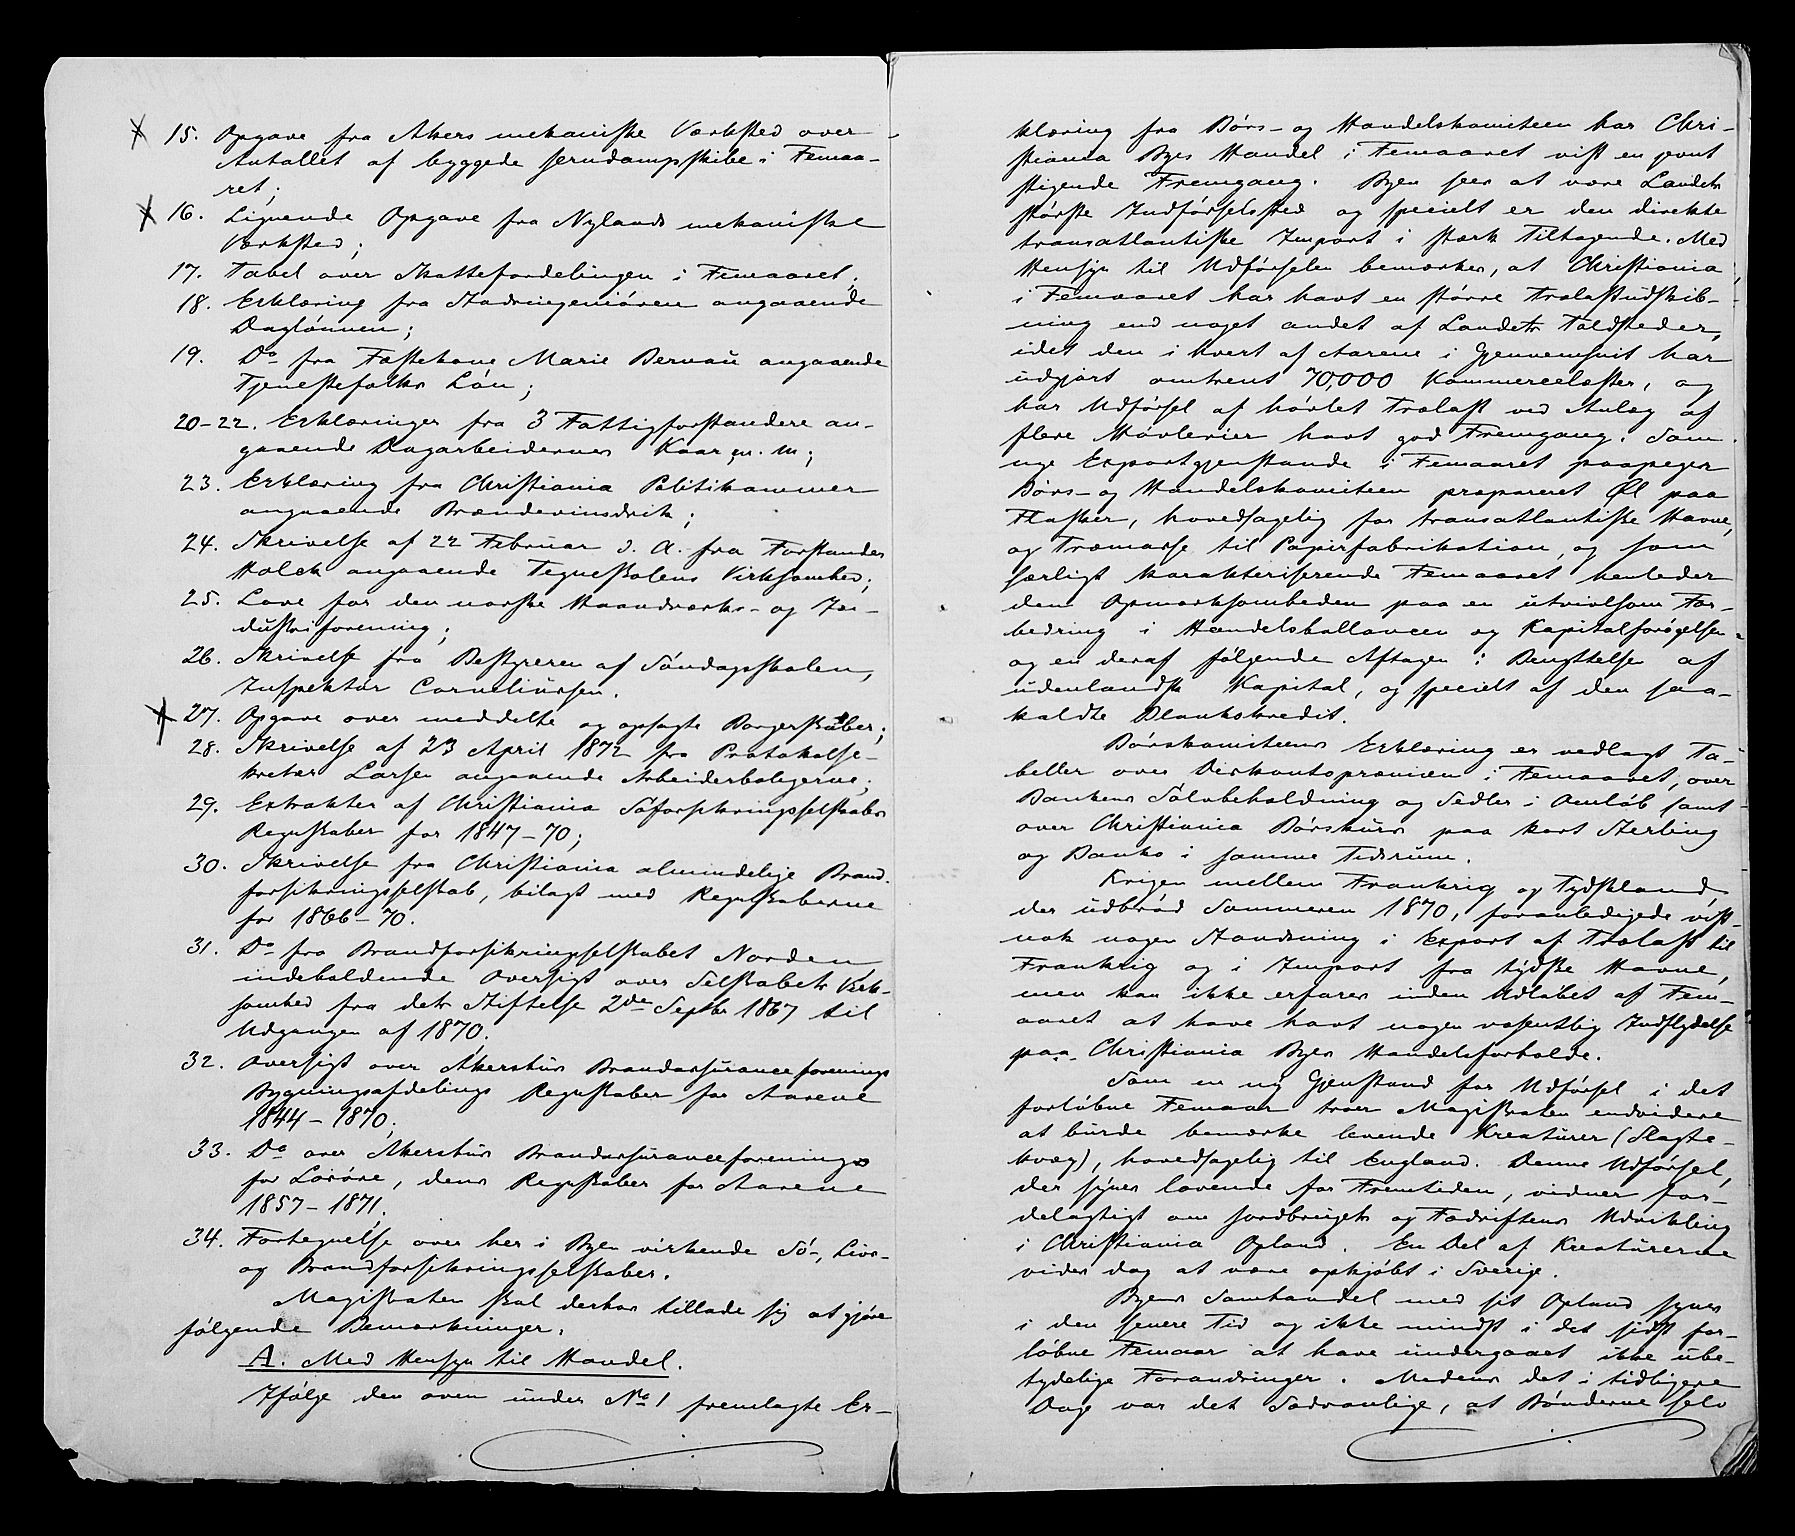 15. Opgave fra Akers mekaniske Værksted over
Antallet af byggede Jerndampskibe i Femaa-
ret;
16. Lignende Opgave fra Nylands mekaniske
Værksted;
17. Tabel over Skattefordelingen i Femaaret;
18. Erklæring fra Stadsingeniøren angaaende
Daglønnen;
19. Do fra Fæstekone Marie Bernau angaaende
Tjenestefolks Løn;
20-22. Erklæringer fra 3 Fattigforstandere an-
gaaende Dagarbeidernes Kaar m. m;
23. Erklæring fra Christiania Politikammer
angaaende Brændevinsdrik;
24. Skrivelse af 22 Februar d. A. fra Forstander
Holck angaaende Tegneskolens Virksomhed;
25. Love for den norske Haandværks- og In-
dustriforening;
26. Skrivelse fra Bestyreren af Søndagsskolen,
Inspektør Corneliussen.
27. Opgave over meddelte og opsagte Borgerskaber;
28. Skrivelse af 23 April 1872 fra Protokolse-
kretær Larsen angaaende Arbeiderboligerne;
29. Extrakter af Christiania Søforsikringsselskabs
Regnskaber for 1847-70;
30. Skrivelse fra Christiania almindelige Brand-
forsikringsselskab, bilagt med Regnskaberne
for 1866-70.
31. Do fra Brandforsikringsselskabet Norden
indeholdende Oversigt over Selskabets Virk-
somhed fra dets Stiftelse 2den Septbr 1867 til
Udgangen af 1870.
32. Oversigt over Akershus Brandassuranceforenings
Bygningsafdelings Regnskaber for Aarene
1844-1870;
33. Do over Akershus Brandassuranceforenings
for Løsøre, dens Regnskaber for Aarene
1857-1871.
34. Fortegnelse over her i Byen virkende Sø-, Livs-
og Brandforsikringsselskaber.
Magistraten skal derhos tillade sig at gjøre
følgende Bemærkninger.
A. Med Hensyn til Handel.
Ifølge den oven under No 1 fremlagte Er-
klæring fra Børs- og Handelskomiteen har Chri-
stiania Byes Handel i Femaaret vist en jevnt
stigende Fremgang. Byen sees at være Landets
største Indførselssted og specielt er den direkte
transatlantiske Import i stærk Tiltagende. Med
Hensyn til Udførselen bemærkes, at Christiania
i Femaaret har havt en større Trælastudskib-
ning end noget andet af Landets Toldsteder,
idet den i hvert af Aarene i Gjennemsnit har
udgjort omtrent 70,000 Kommercelæster, og
har Udførsel af høvlet Trælast ved Anlæg af
flere Høvlerier havt god Fremgang. Som
nye Exportgjenstande i Femaaret paapeger
Børs- og Handelskomiteen præpareret Øl paa
Flasker, hovedsagelig for transatlantiske Havne,
og Træmasse til Papirfabrikation, og som
særligt karakteriserende Femaaret henleder
den Opmærksomheden paa en utvivlsom For-
bedring i Handelsballancen og Kapitalforøgelsen
og en deraf følgende Aftagen i Benyttelse af
udenlandsk Kapital, og specielt af den saa-
kaldte Blankokredit.
Børskomiteens Erklæring er vedlagt Ta-
beller over Diskontopræmien i Femaaret, over
Bankens Sølvbeholdning og Sedler i Omløb samt
over Christiania Børskurs paa kort Sterling
og Banko i samme Tidsrum.
Krigen mellem Frankrig og Tydskland,
der udbrød Sommeren 1870, foranledigede vist-
nok nogen Standsning i Export af Trælast til
Frankrig og i Import fra tydske Havne,
men kan ikke erfares inden Udløbet af Fem-
aaret at have havt nogen væsentlig Indflydelse
paa Christiania Byes Handelsforholde.
Som en ny Gjenstand for Udførsel i det
forløbne Femaar troer Magistraten endvidere
at burde bemærke levende Kreaturer (Slagte-
kvæg), hovedsagelig til England. Denne Udførsel,
der synes lovende for Fremtiden, vidner for-
delagtigt om Jordbrugets og Fædriftens Udvikling
i Christiania Opland. En Del af Kreaturerne
vides dog at være opkjøbt i Sverige.
Byens Samhandel med sit Opland synes
i den senere Tid og ikke mindst i det sidst for-
løbne Femaar at have undergaaet ikke ube-
tydelige Forandringer. Medens det i tidligere
Dage var det Sædvanlige, at Bønderne selv